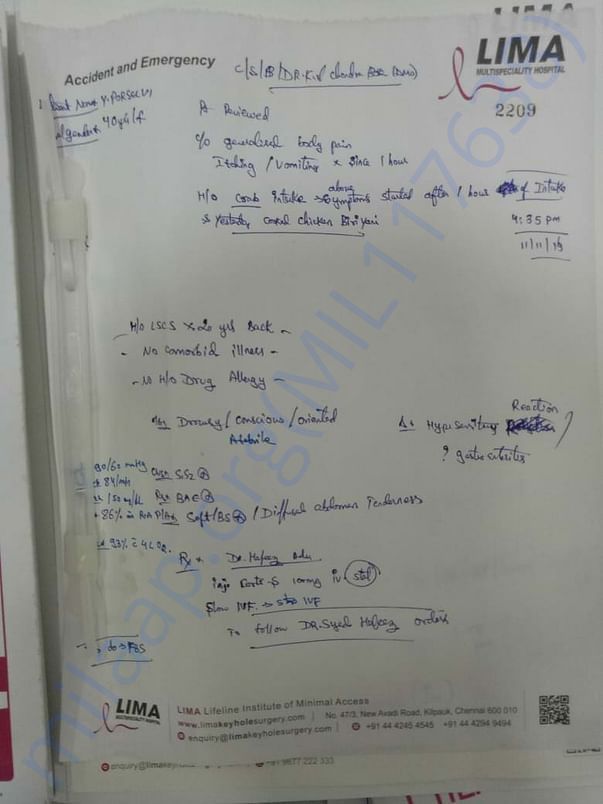 Accident and Emergency
C/S/B/DR.
LIMA
MULTISPECIALITY HOSPITAL
2209
40yrs/f
Pt Reviewed
C/o generalised body pain
Itching / Vomiting x Since 1 hour
H/o Crab intake → above Symptoms started after 1 hour of Intake
Yesterday chicken Biriyani
4:35 pm
11/11/19
H/o LSCS x 20 yrs Back
- No comorbid illness -
- No H/o Drug Allergy -
Drowsy / Conscious / oriented
Afebrile
Hypersensitivity Reaction
? gastroenteritis
90/60 mmHg CVS: S1S2 ⊕
84/min
RS: BAE ⊕
86% in RA P/A: Soft/BS ⊕ / Diffuse abdomen Tenderness
93% 4L O2
Rx Dr. Hafeez Adv
100mg iv stat
Slow IVF
To follow DR. Syed Hafeez orders
milaap.org(MIL117630)
LIMA
MULTISPECIALITY HOSPITAL
LIMA Lifeline Institute of Minimal Access
www.limakeyholesurgery.com | No. 47/3, New Avadi Road, Kilpauk, Chennai 600 010
enquiry@limakeyholesurgery.com | +91 44 4245 4545 +91 44 4294 9494
enquiry@limakey
9677 222 333